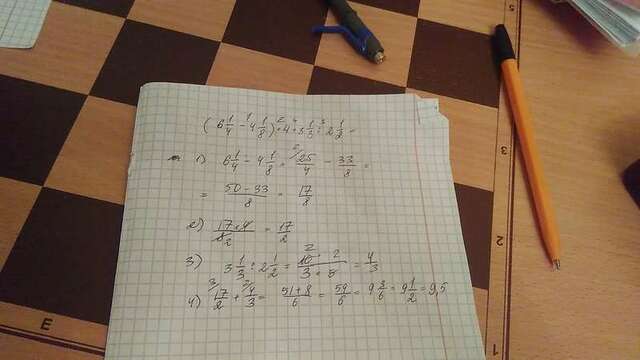 (6 1/4 - 4 1/8) · 4 + 3 1/3 : 2 1/2 =
1) 6 1/4 - 4 1/8 = 25/4 - 33/8 =
= 50-33/8 = 17/8
2) 17·4/8 2 = 17/2
3) 3 1/3 : 2 1/2 = 10 · 2/3 · 5 = 4/3
4) 17/2 + 4/3 = 51+8/6 = 59/6 = 9 3/6 = 9 1/2 = 9,5
E
1
2
3
5